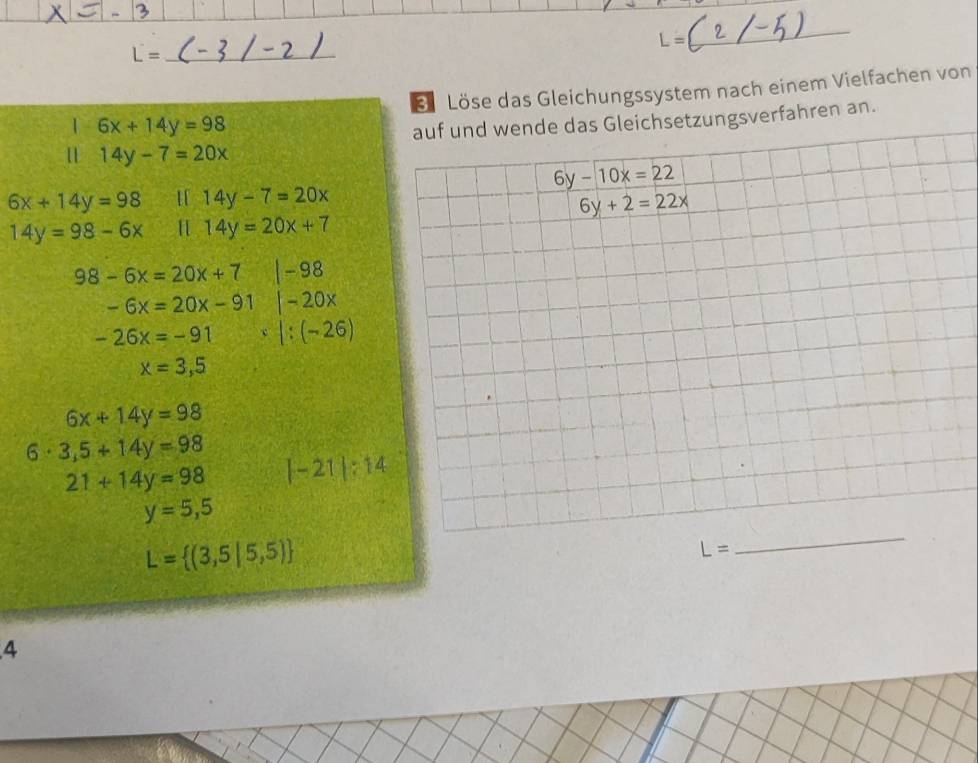 x = - 3
L = (-3 / -2)
L = (2 / -5)
I 6x + 14y = 98
II 14y - 7 = 20x
6x + 14y = 98 II 14y - 7 = 20x
14y = 98 - 6x II 14y = 20x + 7
98 - 6x = 20x + 7 | -98
- 6x = 20x - 91 | -20x
- 26x = -91 | : (-26)
x = 3,5
6x + 14y = 98
6 · 3,5 + 14y = 98
21 + 14y = 98 | -21 | : 14
y = 5,5
L = {(3,5 | 5,5)}
3 Löse das Gleichungssystem nach einem Vielfachen von
auf und wende das Gleichsetzungsverfahren an.
6y - 10x = 22
6y + 2 = 22x
L =
4